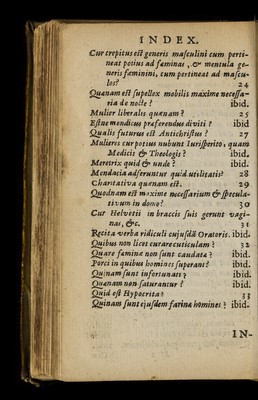 INDEX.
Cur crepitus est generis masculini cum perti-
neat potius ad fæminas, & mentula ge-
neris fæminini, cum pertineat ad mascu-
los? 24
Quænam est supellex mobilis maxime necessa-
ria de nocte? ibid.
Mulier liberalis quænam? 25
Estne mendicus præferendus diviti? ibid
Qualis futurus est Antichristus? 27
Mulieres cur potius nubunt Iurisperito, quam
Medicis & Theologis? ibid.
Meretrix quid & unde? ibid.
Mendacia adferuntur quid utilitatis? 28
Charitativa quænam est. 29
Quodnam est maxime necessarium & specula-
tivum in domo? 30
Cur Helvetii in braccis suis gerunt vagi-
nas, &c. 31
Recita verba ridiculi cujusdā Oratoris. ibid.
Quibus non licet curare cuticulam? 32
Quare fæminæ non sunt caudatæ? ibid.
Porci in quibus homines superant? ibid.
Quinam sunt infortunati? ibid.
Quænam non saturantur? ibid.
Quid est Hypocrita? 33
Quinam sunt ejusdem farinæ homines? ibid.
IN-